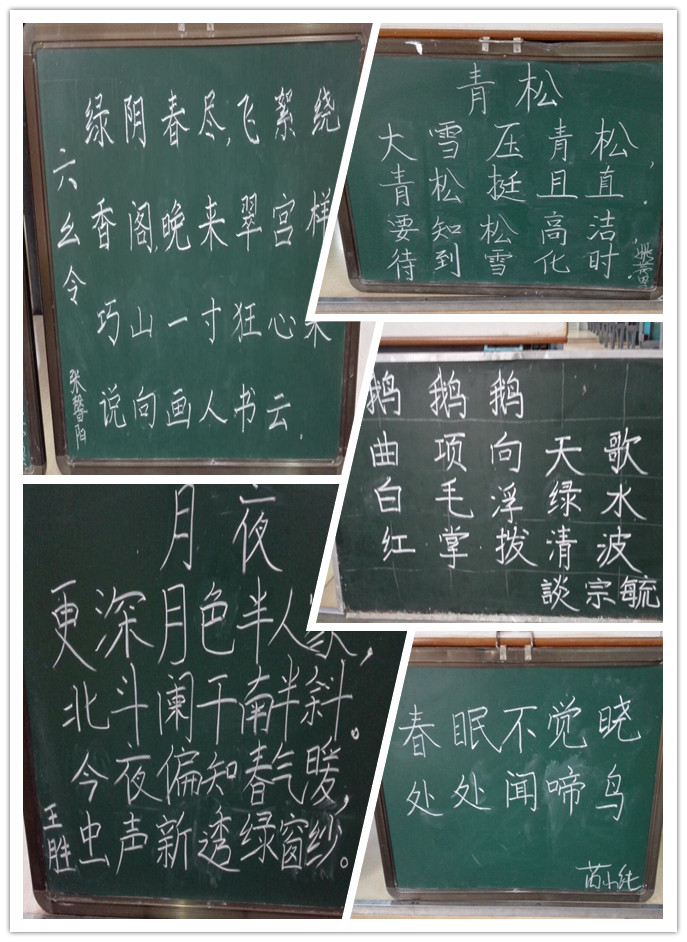 六幺令
绿阴春尽,飞絮绕
香阁,晚来翠宫样
巧山一寸狂心未
说向画人书云,
张馨阳
青松
大雪压青松,
青松挺且直.
要知松高洁
待到雪化时.
鹅鹅鹅
曲项向天歌
白毛浮绿水
红掌拨清波
談宗毓
月夜
更深月色半人家,
北斗阑干南半斜。
今夜偏知春气暖,
虫声新透绿窗纱。
王胜
春眠不觉晓
处处闻啼鸟